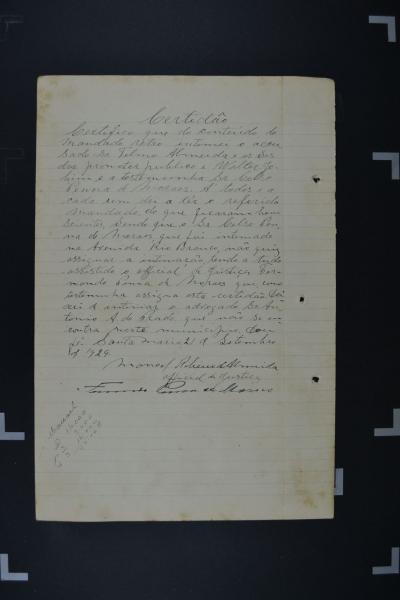 Certidão
Certifico que do conteúdo do
mandado retro intimei o accu
sado Sr Telmo Almeida e os Srs
drs promotor publico e Walter Jo
bim e a testemunha Sr Celso
Penna de Moraes. A todos e a
cada um dei a lêr o referido
mandado do que ficaram bem
scientes, sendo que o Sr Celso Pen
na de Moraes que foi intimado
na Avenida Rio Branco, não quiz
assignar a intimação, sendo a tudo
assistido o official de justiça Fer
nando Penna de Moraes que como
testemunha assigna esta certidão. Dei
xei de intimar o advogado Sr An
tonio A. de que não se en
contra neste municipio. Dou
fé Santa Maria 21 de Setembro
de 1929.
Manoel Ribeiro d'Almeida
official de justiça
Fernando Penna de Moraes